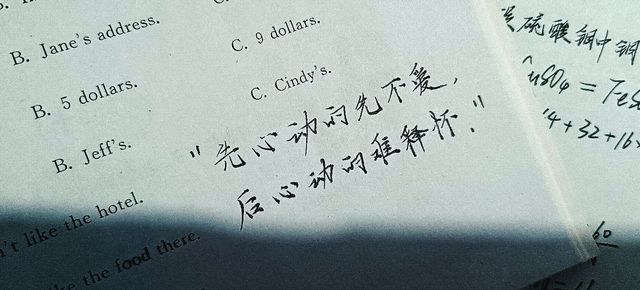 B. Jane's address.
C. 9 dollars.
B. 5 dollars.
C. Cindy's.
B. Jeff's.
"先心动的先不爱,
后心动的难释怀."
n't like the hotel.
the food there.
硫酸铜中铜
uSO₄ = FeS
4+32+16×
60